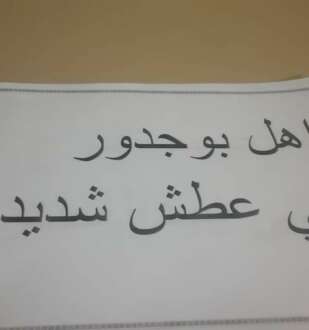 اهل بوجدور
ي عطش شديد